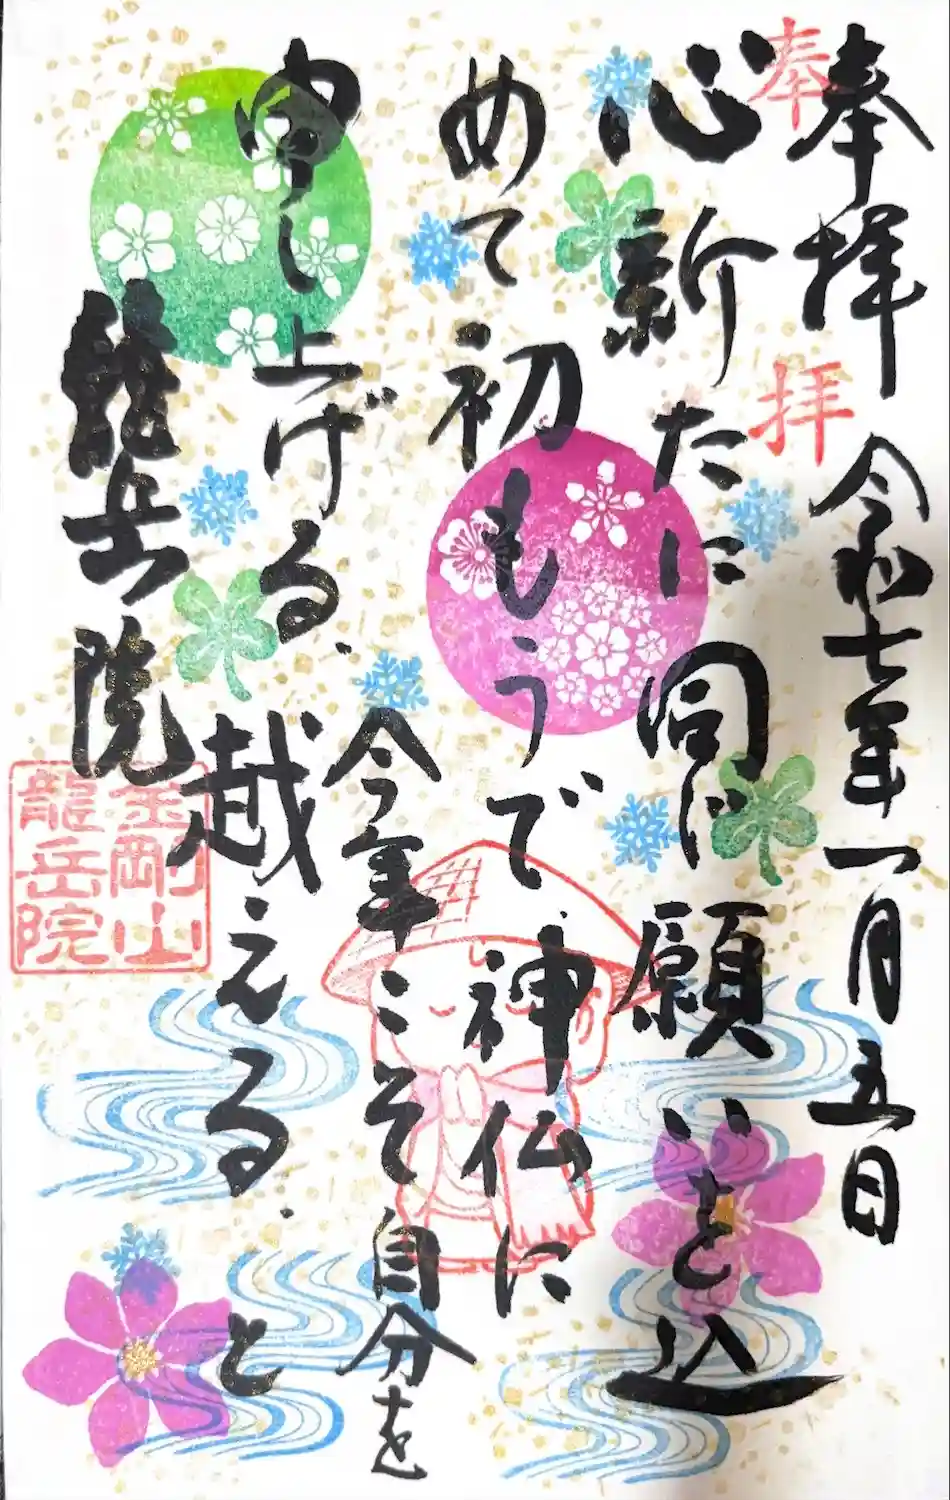 奉拝 令和七年一月五日
奉拝
心新たに 同じ願いを込
めて初もうで神仏に
申し上げる.
今年こそ自分を
越える. と
龍岳院
金剛山
龍岳院